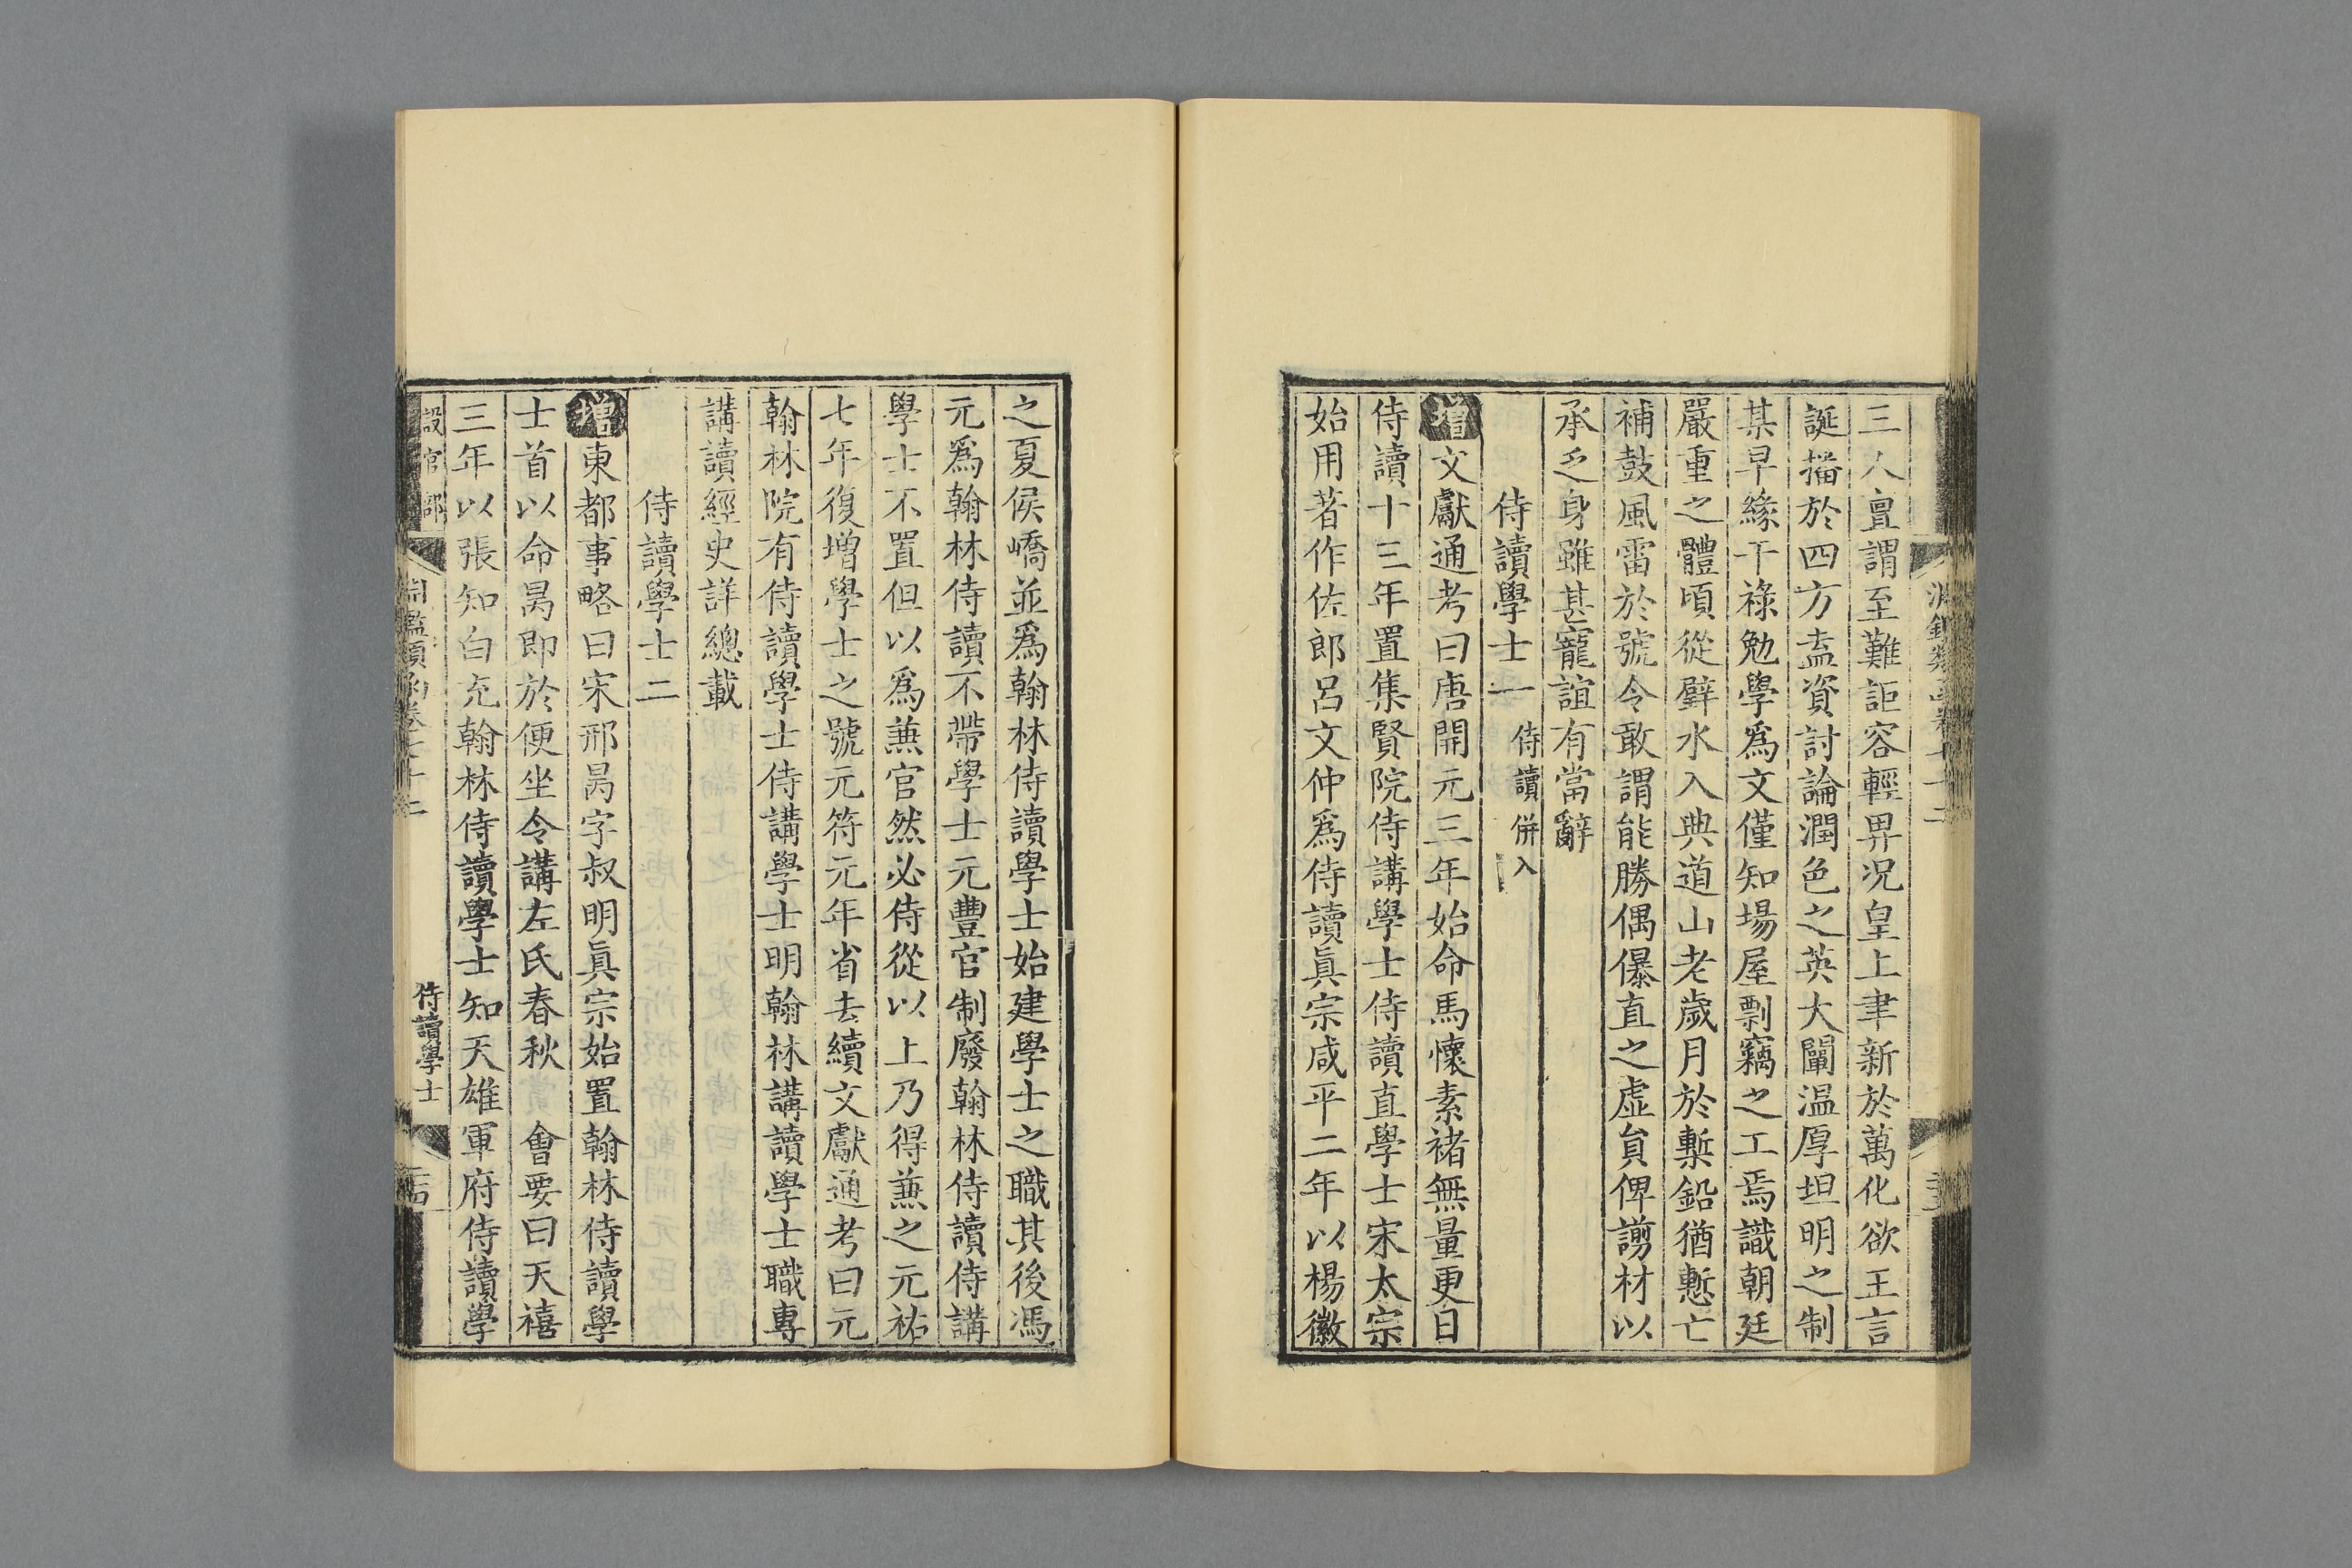 三人亶謂至難詎容輕畀況皇上聿新於萬化欲王言
誕播於四方盍資討論潤色之英大闡温厚坦明之制
某早緣干祿勉學爲文僅知場屋剽竊之工焉識朝廷
嚴重之體頃從璧水入典道山老歲月於槧鉛猶慙亡
補鼓風雷於號令敢謂能勝偶儤直之虛員俾謭材以
承乏身雖甚寵誼有當辭
侍讀學士一 侍讀併入
增文獻通考曰唐開元三年始命馬懷素褚無量更日
侍讀十三年置集賢院侍講學士侍讀直學士宋太宗
始用著作佐郎呂文仲爲侍讀眞宗咸平二年以楊徽
之夏侯嶠並爲翰林侍讀學士始建學士之職其後馮
元爲翰林侍讀不帶學士元豐官制廢翰林侍讀侍講
學士不置但以爲兼官然必侍從以上乃得兼之元祐
七年復增學士之號元符元年省去續文獻通考曰元
翰林院有侍讀學士侍講學士明翰林講讀學士職專
講讀經史詳總載
侍讀學士二
增東都事略曰宋邢昺字叔明眞宗始置翰林侍讀學
士首以命昺即於便坐令講左氏春秋 會要曰天禧
三年以張知白充翰林侍讀學士知天雄軍府侍讀學
設官部
淵鑑類函卷七十二
侍讀學士